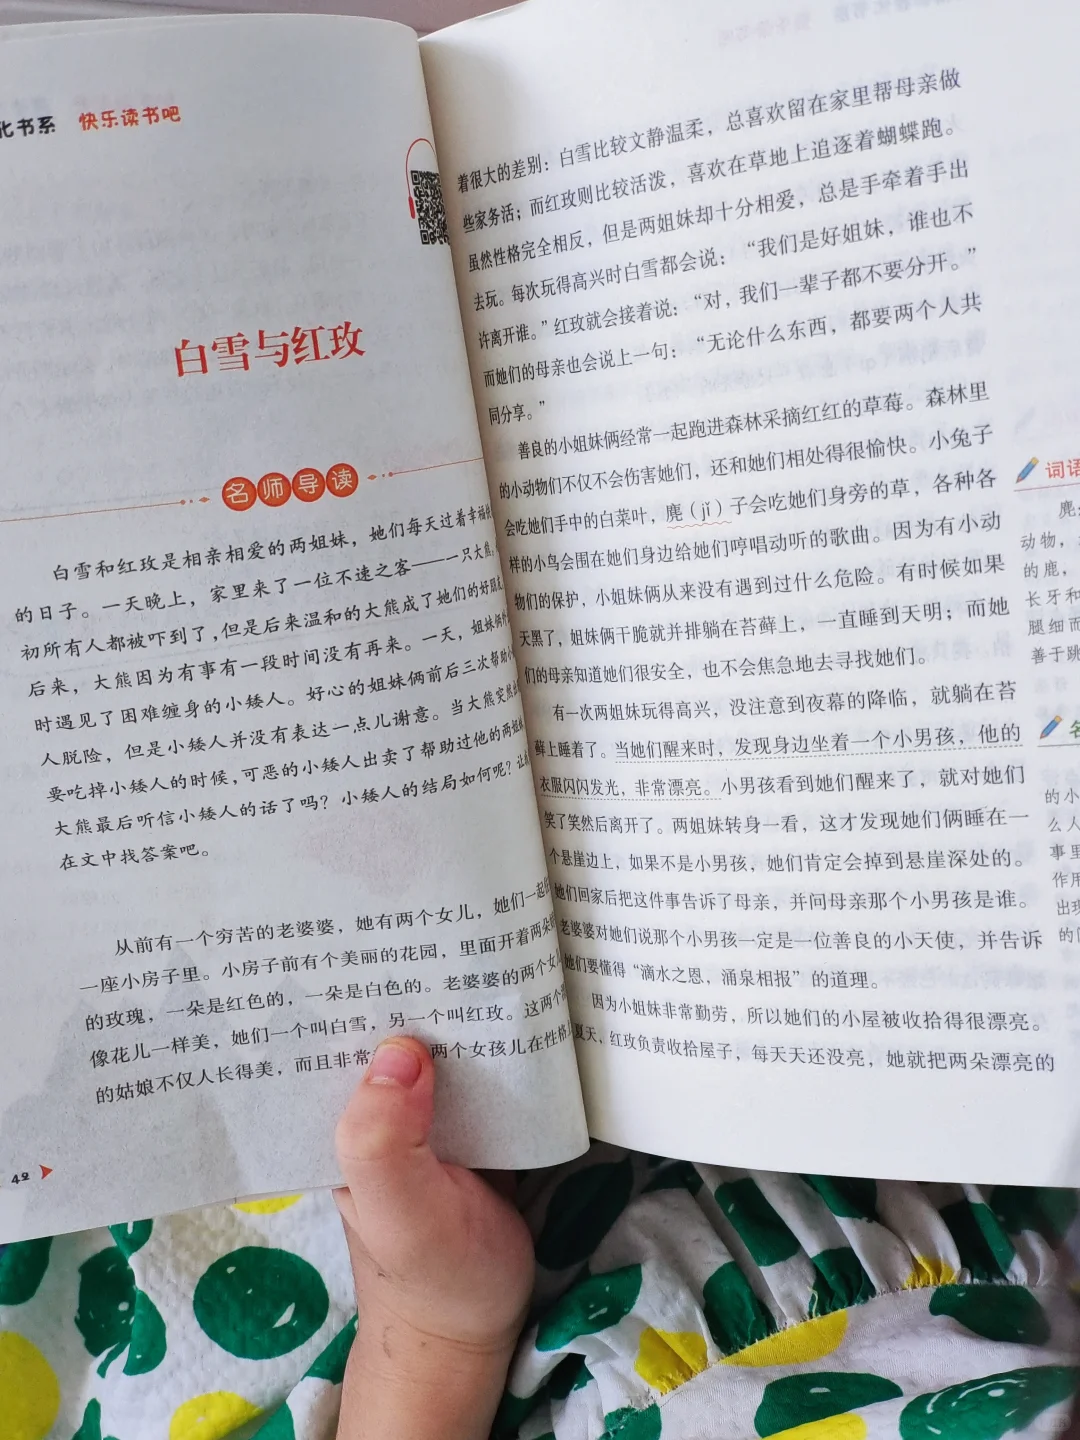 化书系 快乐读书吧
白雪与红玫
名师导读
白雪和红玫是相亲相爱的两姐妹，她们每天过着幸福
的日子。一天晚上，家里来了一位不速之客——一只大熊。
初所有人都被吓到了，但是后来温和的大熊成了她们的好朋友
后来，大熊因为有事有一段时间没有再来。一天，姐妹俩
时遇见了困难缠身的小矮人。好心的姐妹俩前后三次帮助小
人脱险，但是小矮人并没有表达一点儿谢意。当大熊突然
要吃掉小矮人的时候，可恶的小矮人出卖了帮助过他的两姐妹
大熊最后听信小矮人的话了吗？小矮人的结局如何呢？让
在文中找答案吧。
从前有一个穷苦的老婆婆，她有两个女儿，她们一起
一座小房子里。小房子前有个美丽的花园，里面开着两朵
的玫瑰，一朵是红色的，一朵是白色的。老婆婆的两个女
像花儿一样美，她们一个叫白雪，另一个叫红玫。这两个
的姑娘不仅人长得美，而且非常 两个女孩儿在性格
48
着很大的差别：白雪比较文静温柔，总喜欢留在家里帮母亲做
些家务活；而红玫则比较活泼，喜欢在草地上追逐着蝴蝶跑。
虽然性格完全相反，但是两姐妹却十分相爱，总是手牵着手出
去玩。每次玩得高兴时白雪都会说：“我们是好姐妹，谁也不
许离开谁。”红玫就会接着说：“对，我们一辈子都不要分开。”
而她们的母亲也会说上一句：“无论什么东西，都要两个人共
同分享。”
善良的小姐妹俩经常一起跑进森林采摘红红的草莓。森林里
的小动物们不仅不会伤害她们，还和她们相处得很愉快。小兔子
会吃她们手中的白菜叶，麂（jǐ）子会吃她们身旁的草，各种各
样的小鸟会围在她们身边给她们哼唱动听的歌曲。因为有小动
物们的保护，小姐妹俩从来没有遇到过什么危险。有时候如果
天黑了，姐妹俩干脆就并排躺在苔藓上，一直睡到天明；而她
们的母亲知道她们很安全，也不会焦急地去寻找她们。
有一次两姐妹玩得高兴，没注意到夜幕的降临，就躺在苔
藓上睡着了。当她们醒来时，发现身边坐着一个小男孩，他的
衣服闪闪发光，非常漂亮。小男孩看到她们醒来了，就对她们
笑了笑然后离开了。两姐妹转身一看，这才发现她们俩睡在一
个悬崖边上，如果不是小男孩，她们肯定会掉到悬崖深处的。
她们回家后把这件事告诉了母亲，并问母亲那个小男孩是谁。
老婆婆对她们说那个小男孩一定是一位善良的小天使，并告诉
她们要懂得“滴水之恩，涌泉相报”的道理。
因为小姐妹非常勤劳，所以她们的小屋被收拾得很漂亮。
夏天，红玫负责收拾屋子，每天天还没亮，她就把两朵漂亮的
词语
麂
动物，
的鹿，
长牙和
腿细而
善于跳
名
的小
么人
事里
作用
出现
的